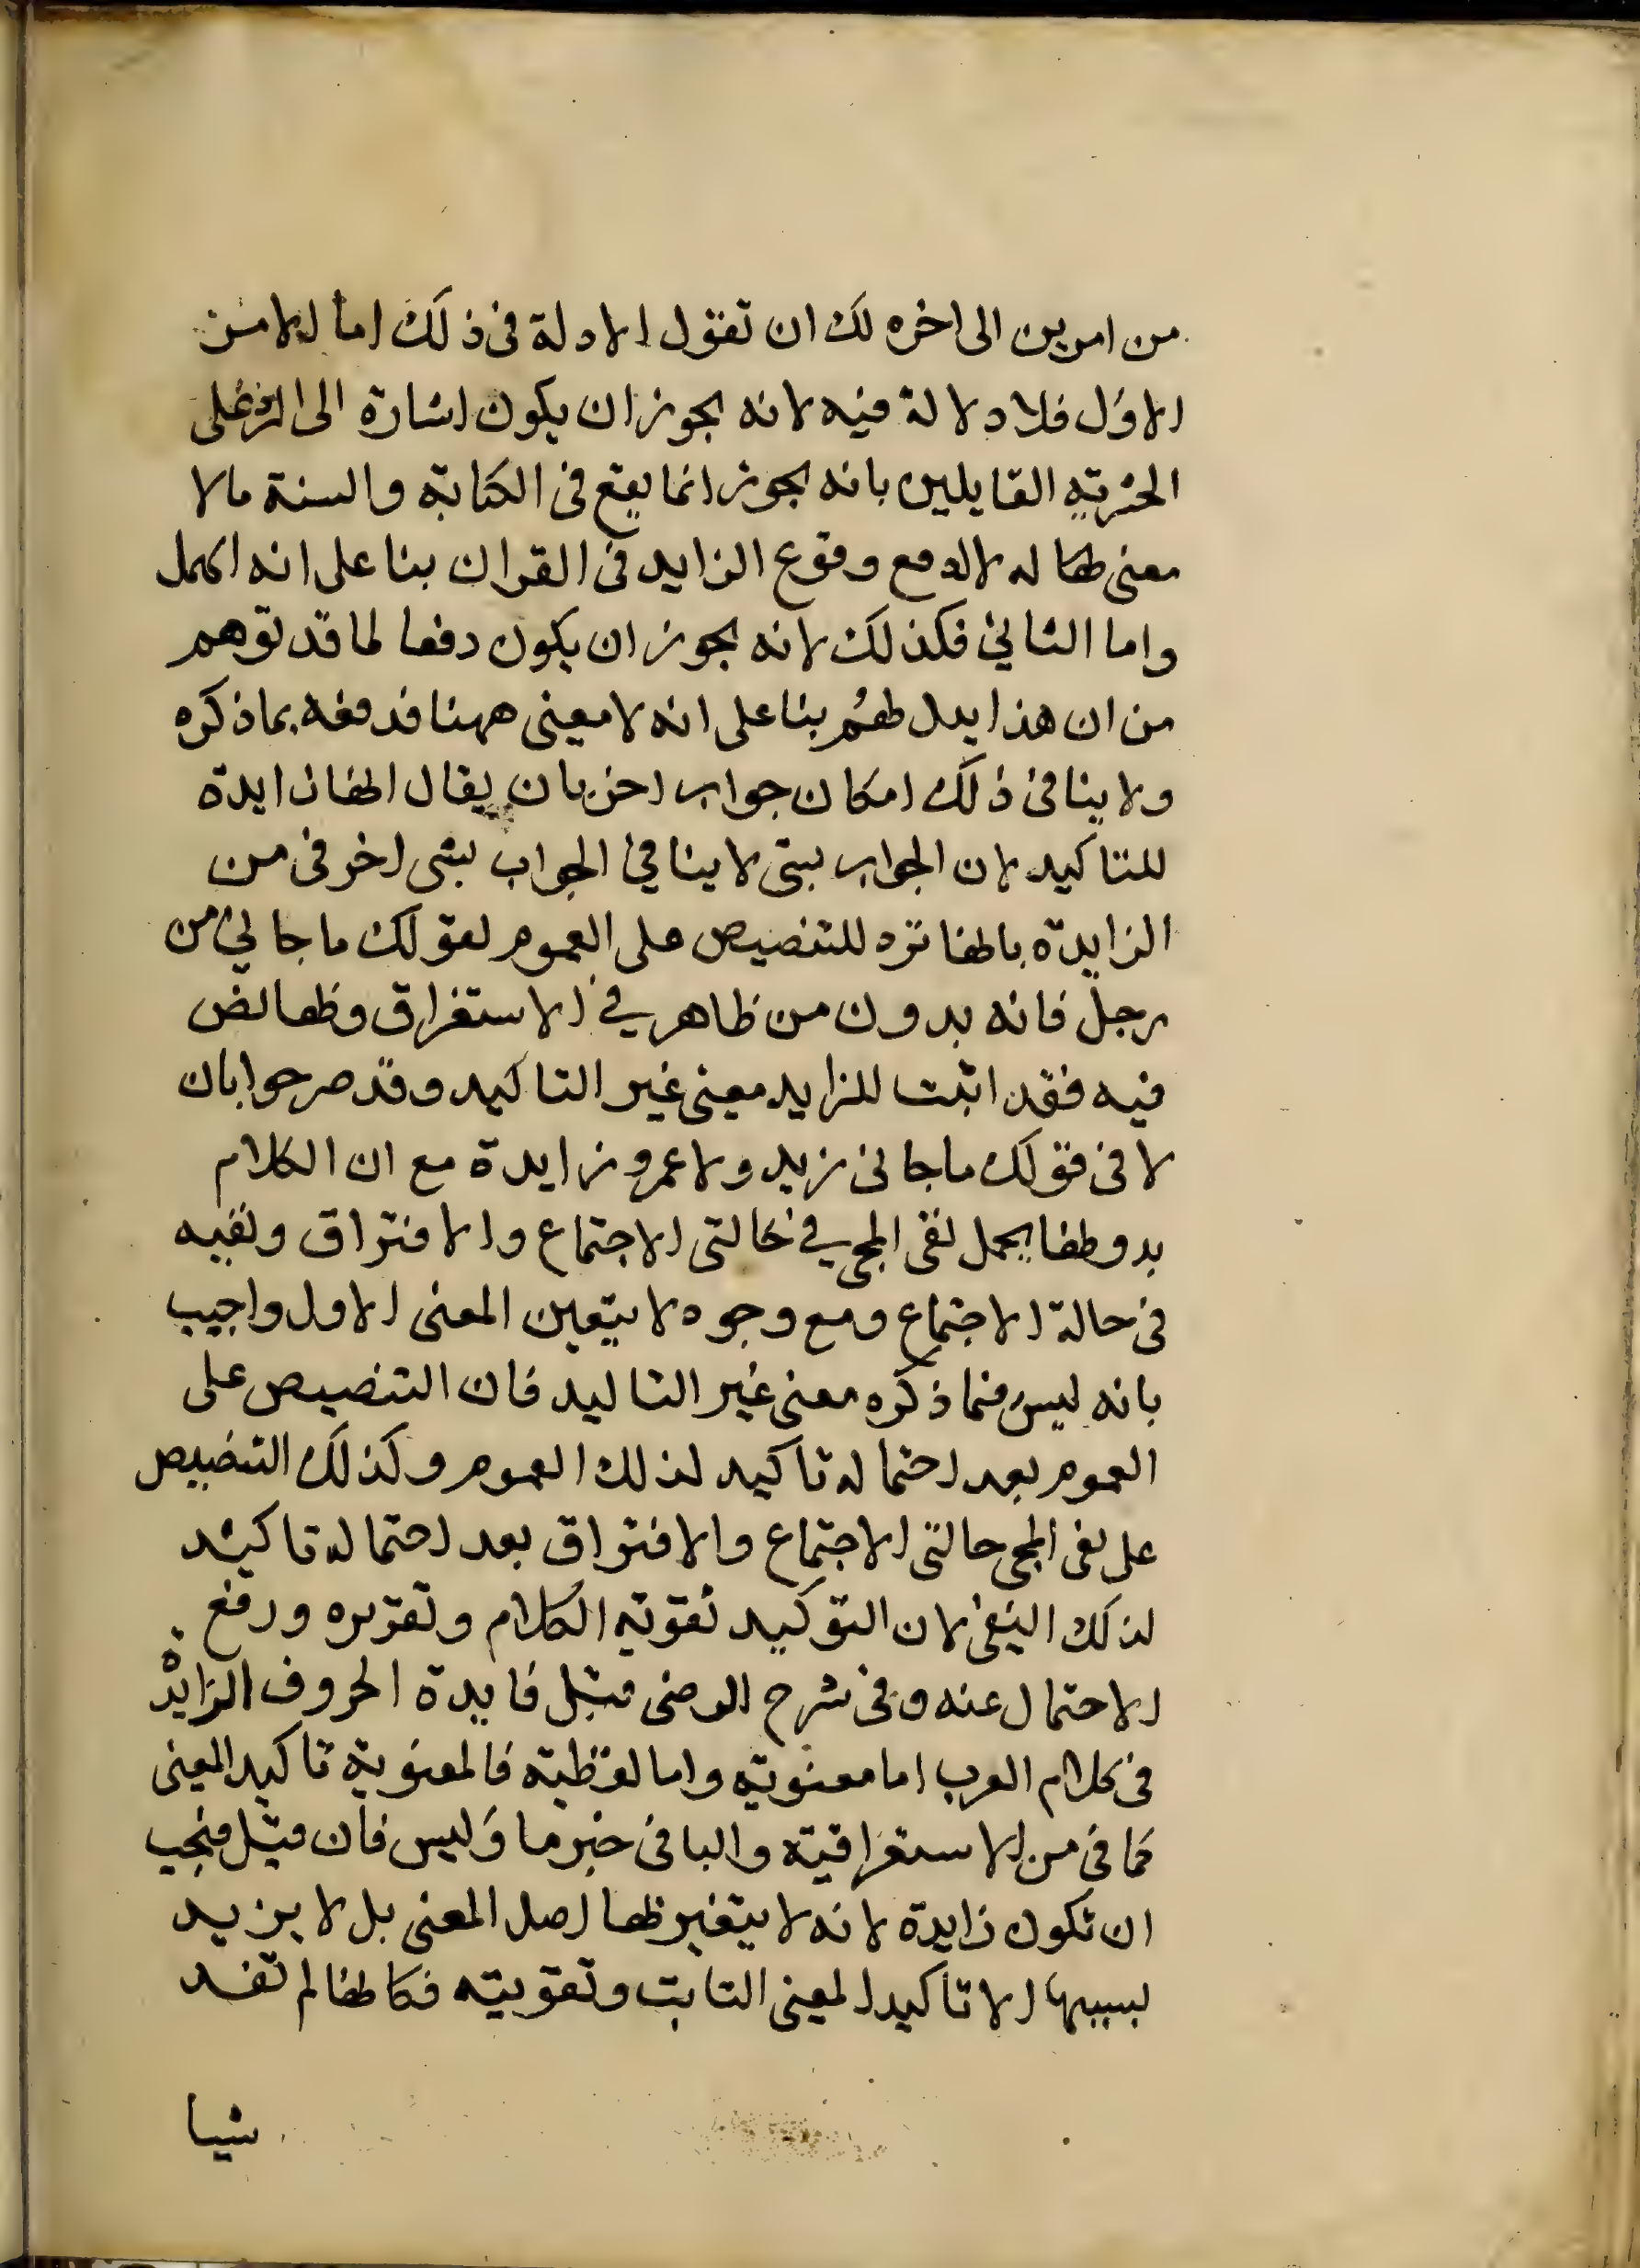 من امرين الى اخره لك ان تقول لا دلة فى ذلك اما الامن
الاول فلا دلالة فيه لانه يجوز ان يكون اشارة الى الرد على
الحشرية القايلين بانه يجوز انما يقع فى الكتابة والسنة مالا
معنى له لا وقوع الزايد فى القران بنا على انه اكمل
واما الثاني فكذلك لانه يجوز ان يكون دفعا لما قد توهم
من ان هذا يدل بنا على انه لا معنى ههنا فدفعه بما ذكره
ولا ينا فى ذلك امكان جواب اخر بان يقال انها زايدة
للتاكيد لان الجواب بشى لا ينا في الجواب بشى اخر فى من
الزايدة بانها ترد للتنصيص على العموم لقولك ما جا لي من
رجل فانه بدون من ظاهر في الاستغراق وبها نص
فيه فقد اثبت للزايد معنى غير التاكيد وقد صرحوا بان
لا فى قولك ما جا نى زيد ولا عمرو زايدة مع ان الكلام
بدونها يحمل نفى المجى في حالتى الاجتماع والافتراق ونفيه
فى حالة الاجتماع ومع وجوه لا يتعين المعنى الاول واجيب
بانه ليس فيما ذكره معنى غير التاليد فان التنصيص على
العموم بعد احتماله تاكيد لذلك العموم وكذلك التنصيص
على نفى المجى حالتى الاجتماع والافتراق بعد احتماله تاكيد
لذلك النفى لان التوكيد تقوية الكلام وتقريره ورفع
الاحتمال عنه وفى شرح الرضى قيل فايدة الحروف الزايدة
فى كلام العرب اما معنوية واما لفظية فالمعنوية تاكيد المعنى
كما فى من الاستغراقية والبا فى خبر ما وليس فان قيل فيجب
ان تكون زايدة لانه لا يتغير بها اصل المعنى بل لا يزيد
بسببها الا تاكيد المعنى الثابت وتقويته فكانها لم تفد
شيا